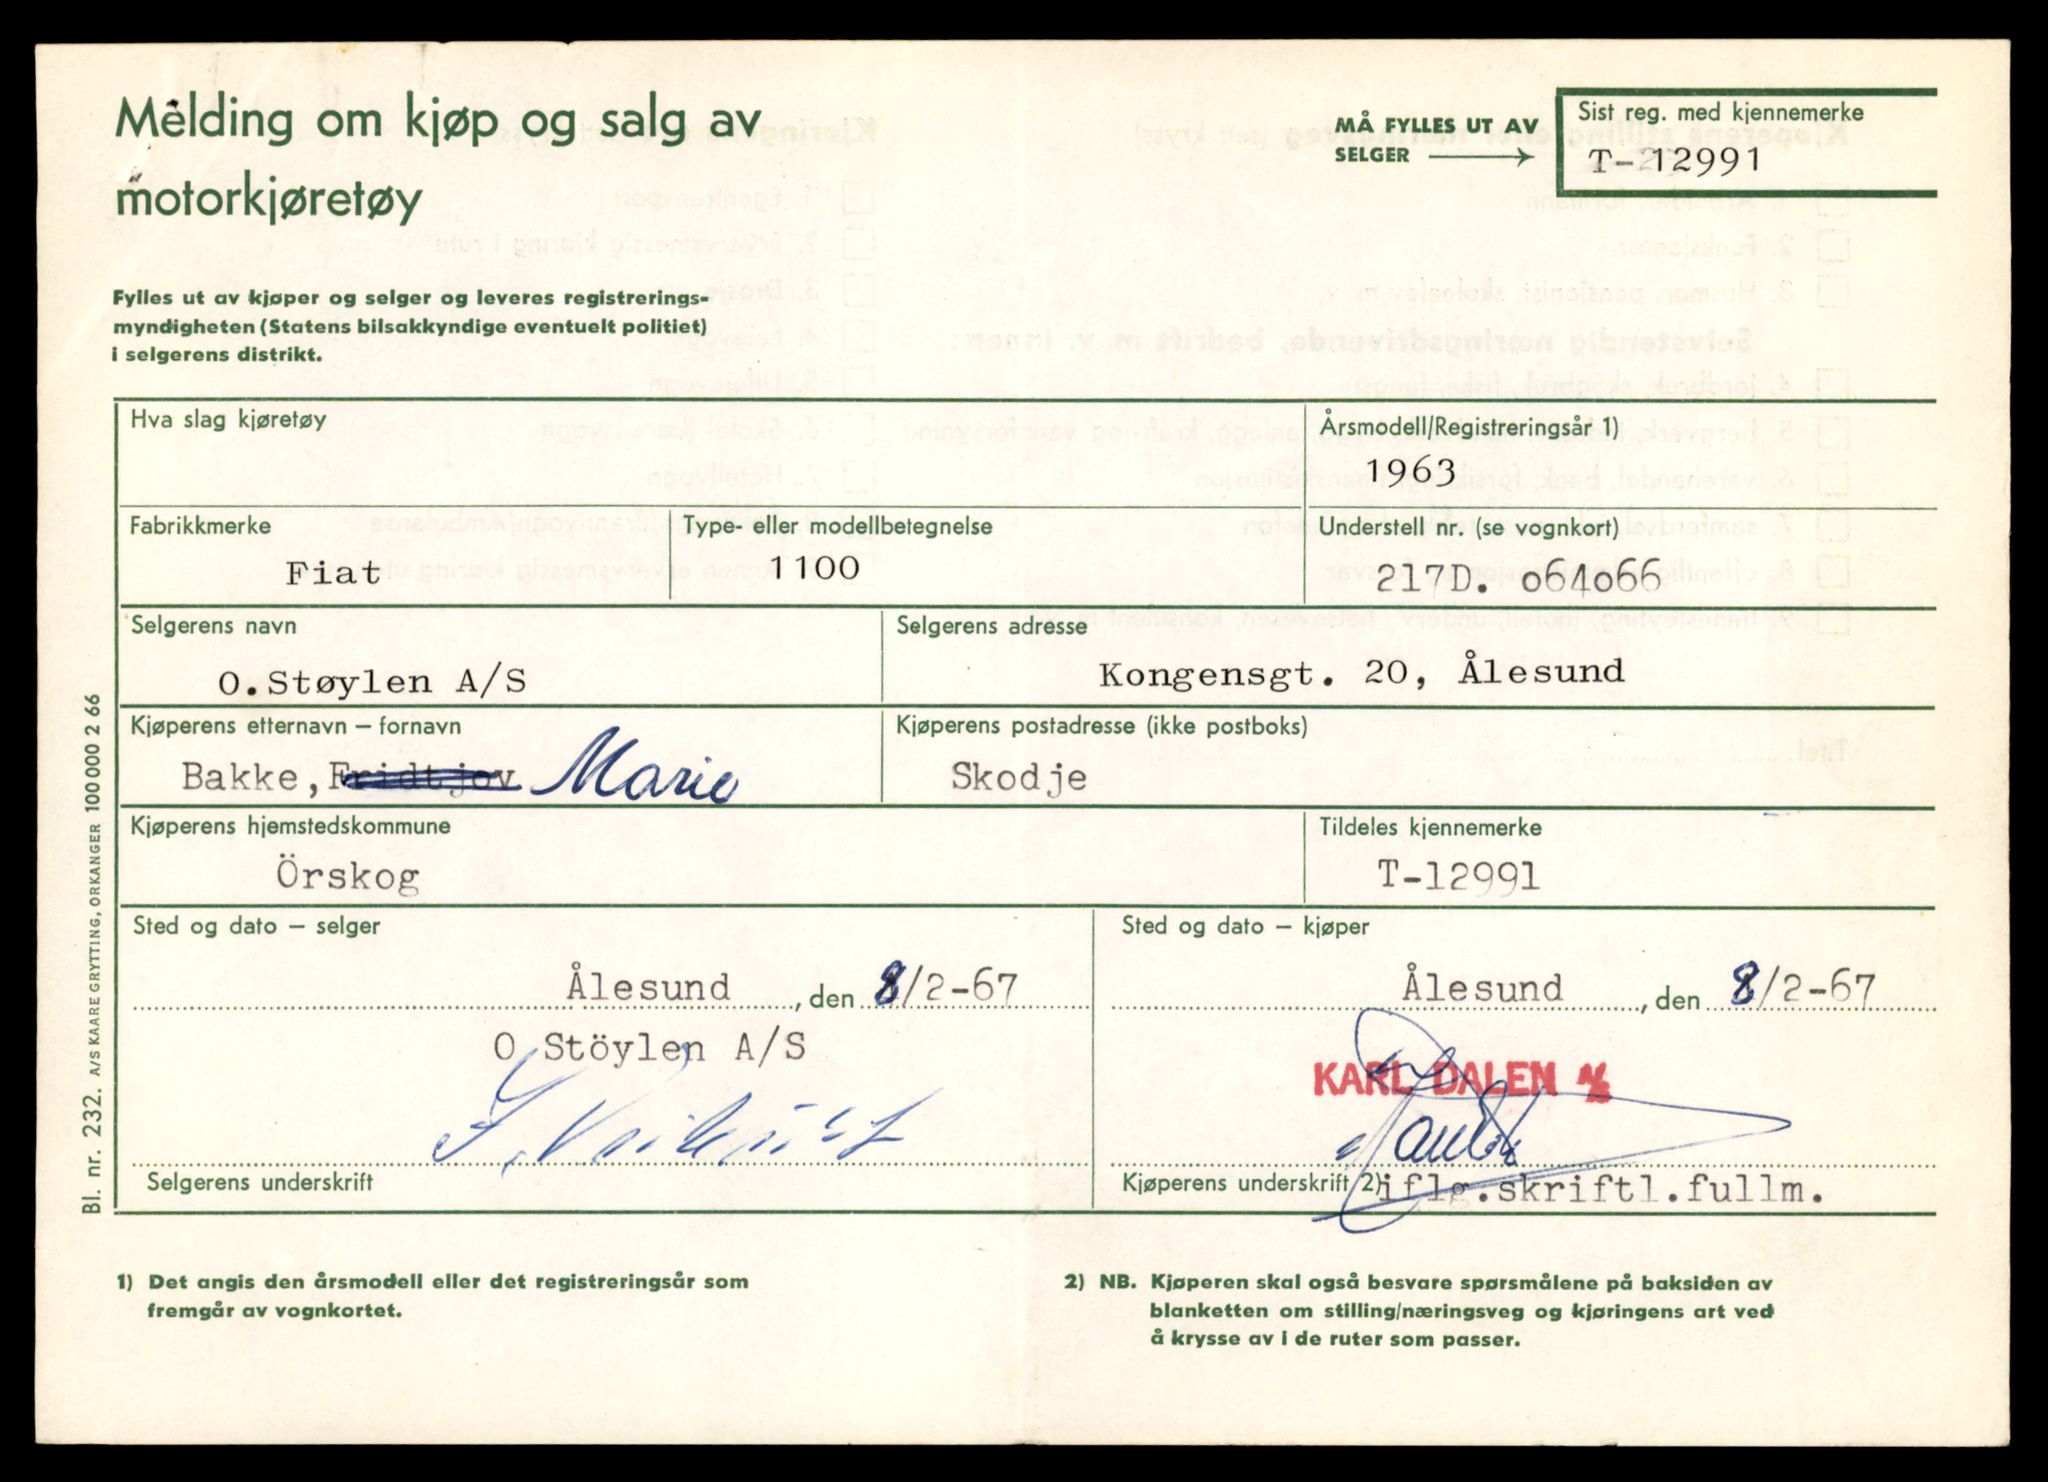 Melding om kjøp og salg av
motorkjøretøy
MÅ FYLLES UT AV
SELGER
Sist reg. med kjennemerke
T-12991
Fylles ut av kjøper og selger og leveres registrerings-
myndigheten (Statens bilsakkyndige eventuelt politiet)
i selgerens distrikt.
Hva slag kjøretøy
Årsmodell/Registreringsår 1)
1963
Fabrikkmerke
Fiat
Type- eller modellbetegnelse
1100
Understell nr. (se vognkort)
217D. o64o66
Selgerens navn
O.Støylen A/S
Selgerens adresse
Kongensgt. 20, Ålesund
Kjøperens etternavn – fornavn
Bakke, Fridtjov Marie
Kjøperens postadresse (ikke postboks)
Skodje
Kjøperens hjemstedskommune
Örskog
Tildeles kjennemerke
T-12991
Sted og dato – selger
Ålesund, den 8/2-67
Sted og dato – kjøper
Ålesund, den 8/2-67
O Stöylen A/S
KARL DALEN A/S
Selgerens underskrift
Kjøperens underskrift 2) iflg.skriftl.fullm.
Bl. nr. 232. A/S KAARE GRYTTING, ORKANGER 100 000 2 66
1) Det angis den årsmodell eller det registreringsår som
fremgår av vognkortet.
2) NB. Kjøperen skal også besvare spørsmålene på baksiden av
blanketten om stilling/næringsveg og kjøringens art ved
å krysse av i de ruter som passer.